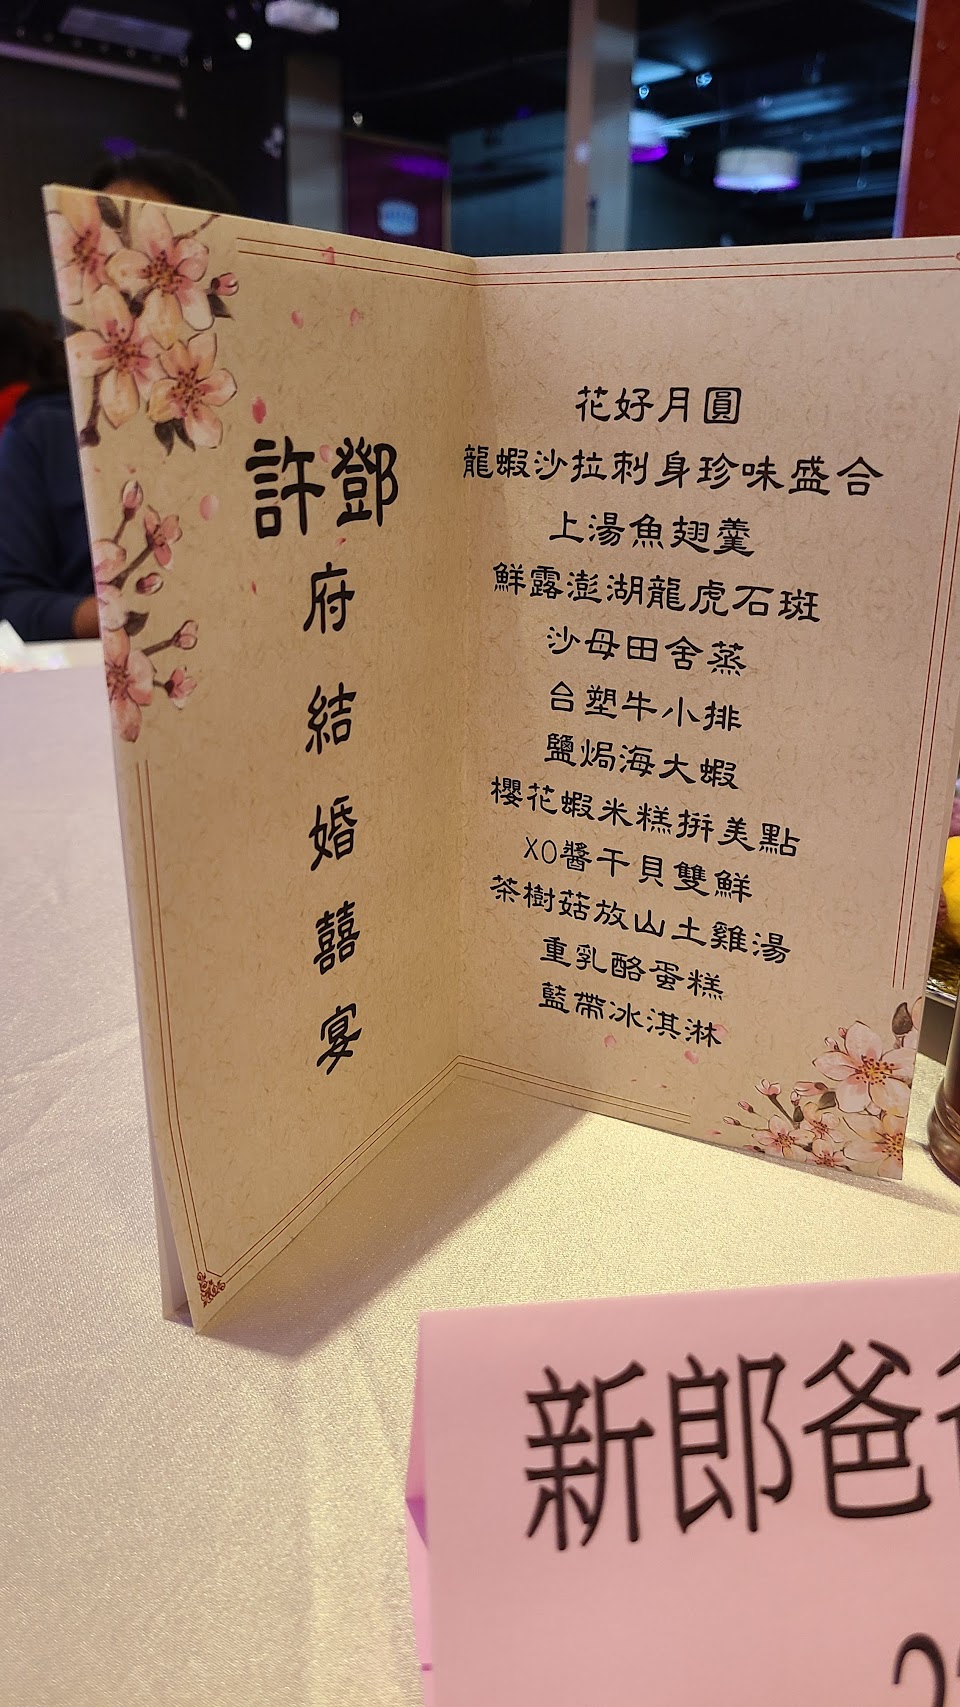 許鄧
府
結
婚
囍
宴
花好月圓
龍蝦沙拉刺身珍味盛合
上湯魚翅羹
鮮露澎湖龍虎石斑
沙母田舍蒸
台塑牛小排
鹽焗海大蝦
櫻花蝦米糕拼美點
XO醬干貝雙鮮
茶樹菇放山土雞湯
重乳酪蛋糕
藍帶冰淇淋
新郎爸